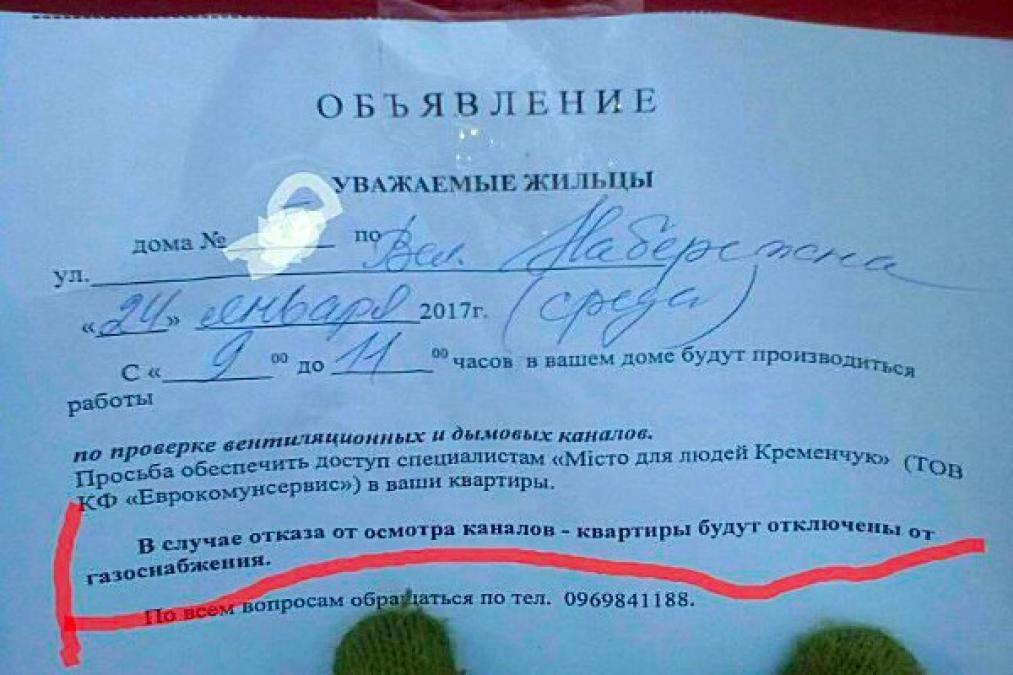 ОБЪЯВЛЕНИЕ
УВАЖАЕМЫЕ ЖИЛЬЦЫ
дома № по
ул. Вел. Набережна
«24» января 2017г. (среда)
С «9 00 до 11 00 часов в вашем доме будут производиться
работы
по проверке вентиляционных и дымовых каналов.
Просьба обеспечить доступ специалистам «Місто для людей Кременчук» (ТОВ
КФ «Еврокомунсервис») в ваши квартиры.
В случае отказа от осмотра каналов - квартиры будут отключены от
газоснабжения.
По всем вопросам обращаться по тел. 0969841188.